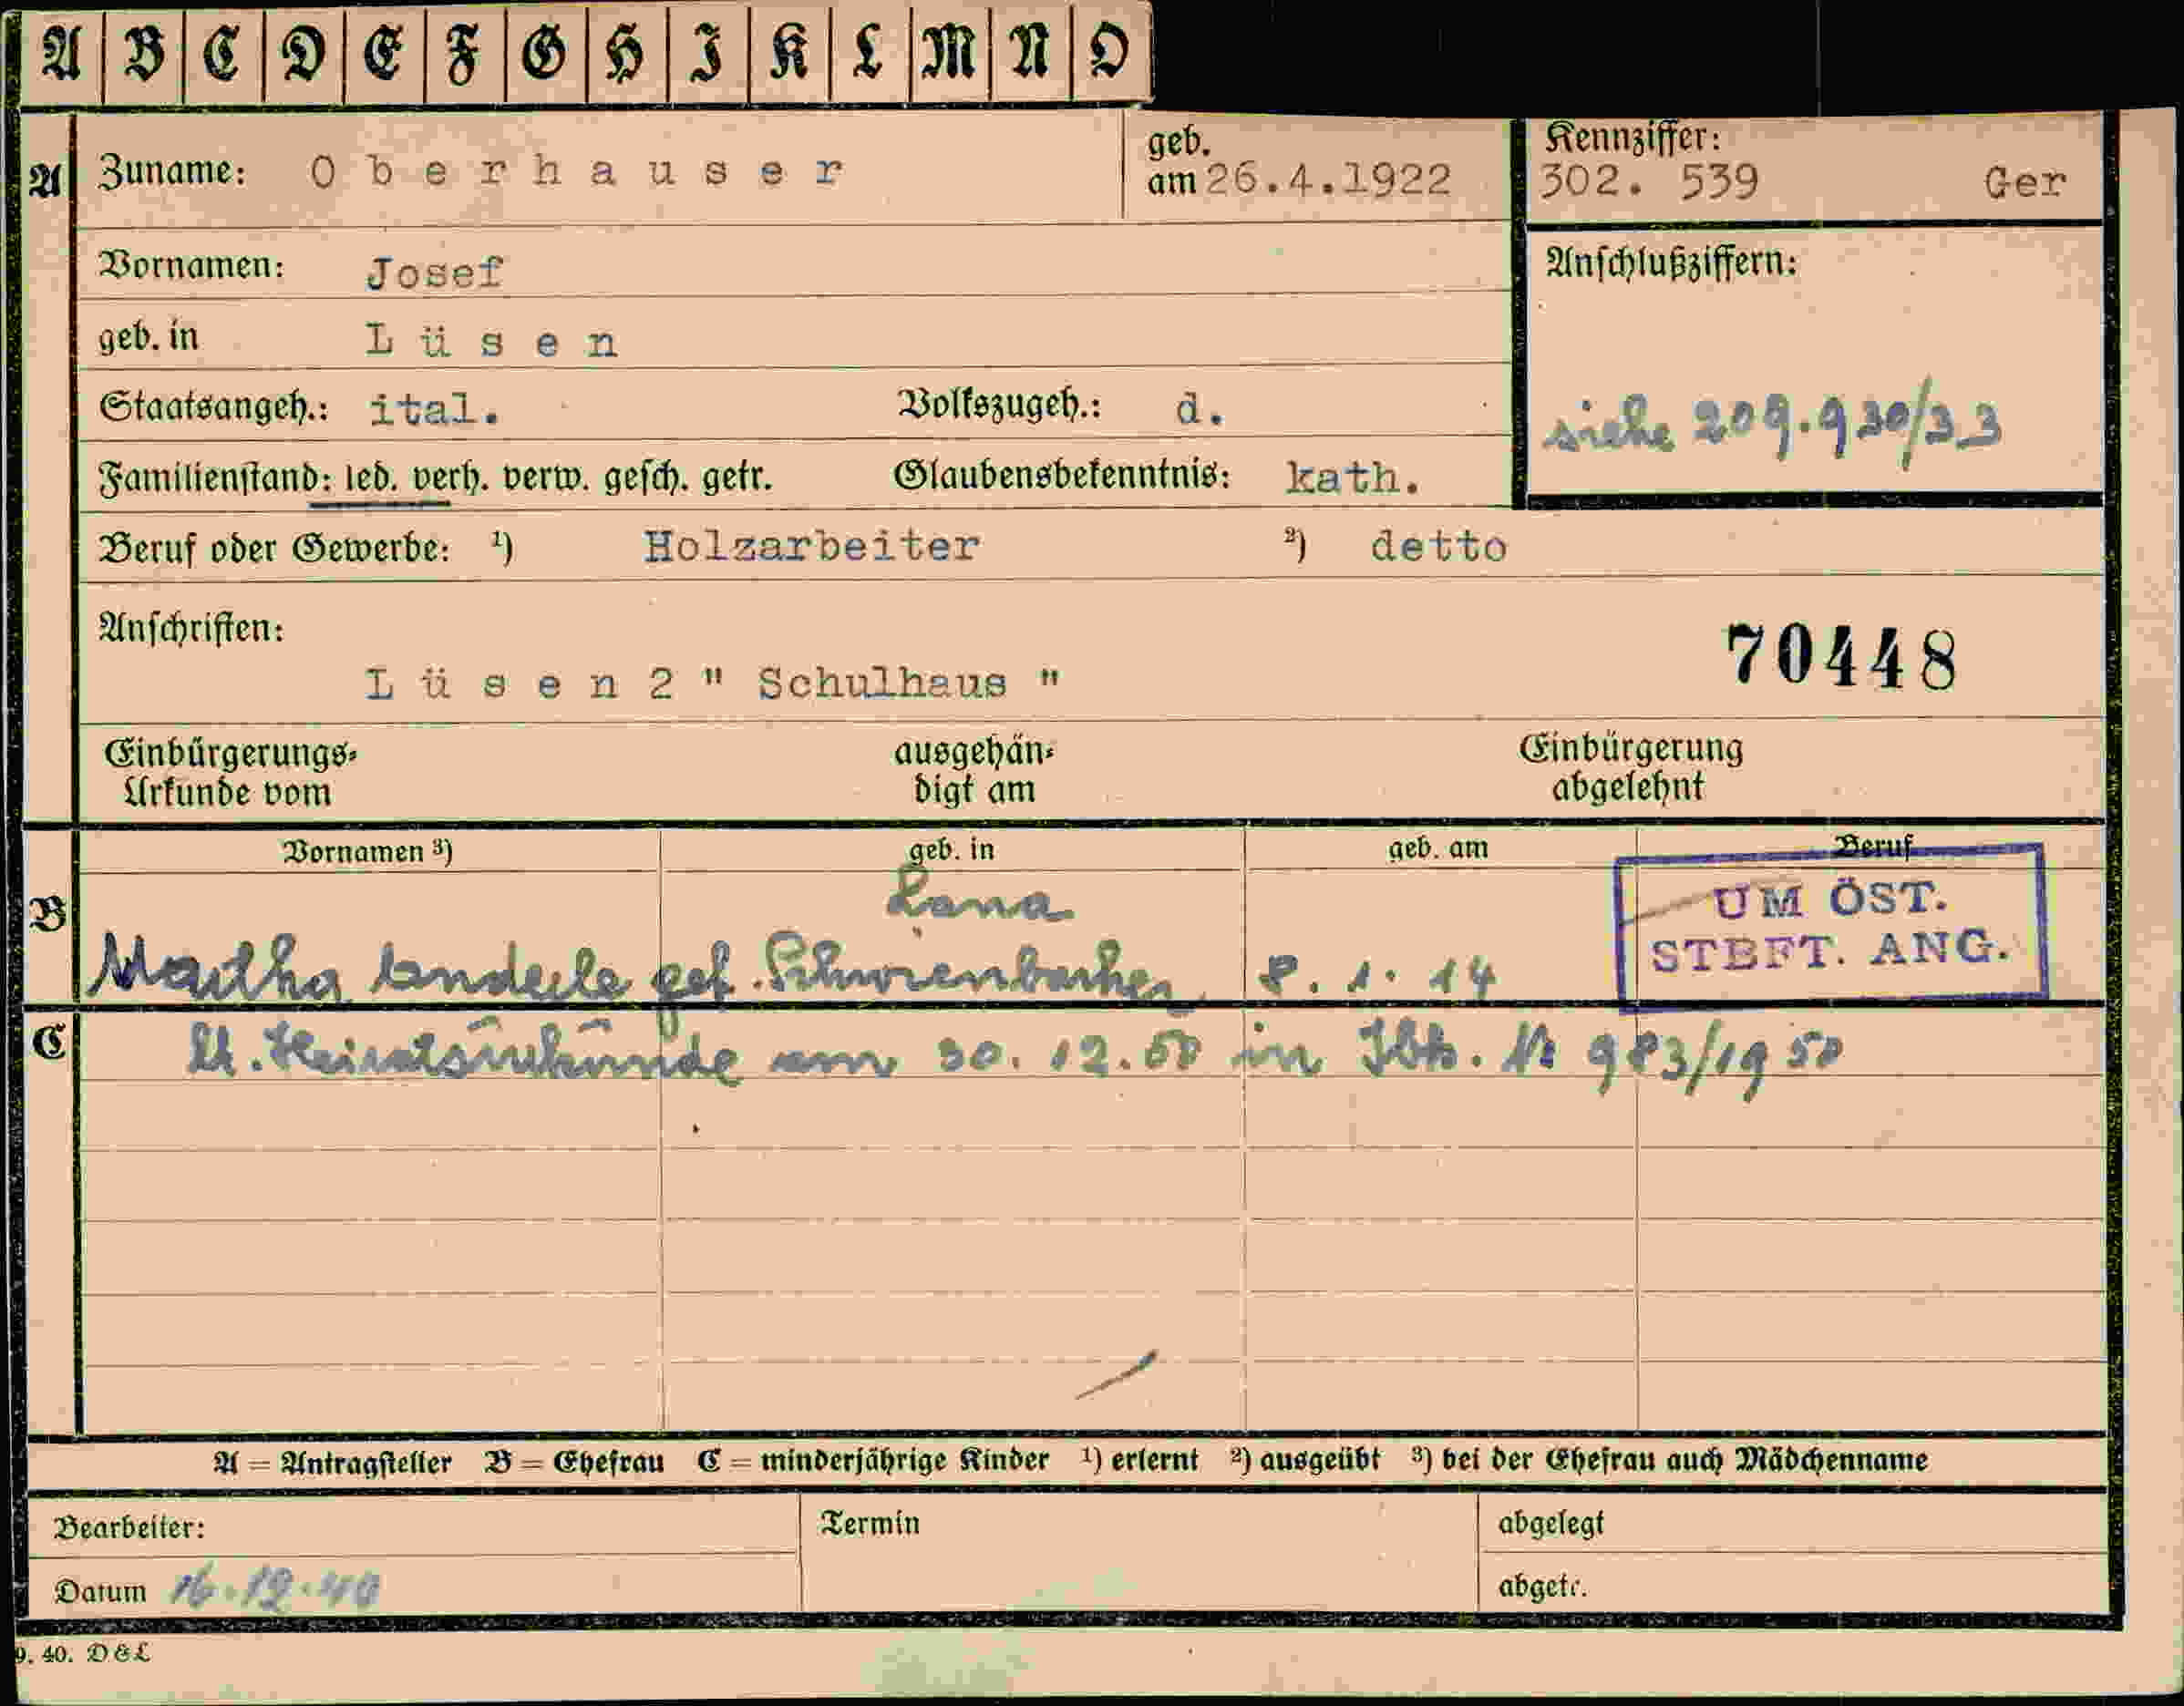 A B C D E F G H I K L M N O
A Zuname: Oberhauser geb. am 26.4.1922 Kennziffer: 302. 539 Ger
Vornamen: Josef Anschlußziffern:
geb. in Lüsen
Staatsangeh.: ital. Volkszugeh.: d. siehe 209.930/33
Familienstand: led. verh. verw. gesch. getr. Glaubensbekenntnis: kath.
Beruf oder Gewerbe: 1) Holzarbeiter 2) detto
Anschriften: 70448
Lüsen 2 " Schulhaus "
Einbürgerungs- ausgehän- Einbürgerung
Urkunde vom digt am abgelehnt
Vornamen 3) geb. in geb. am Beruf
B Lana UM ÖST.
Martha geb. Schwienbacher 8. 1. 14 STBFT. ANG.
C lt. Heiratsurkunde am 30. 12. 50 in Ibk. Nr 983/1950
A = Antragsteller B = Ehefrau C = minderjährige Kinder 1) erlernt 2) ausgeübt 3) bei der Ehefrau auch Mädchenname
Bearbeiter: Termin abgelegt
Datum 16.12.40 abgetr.
9. 40. D & L